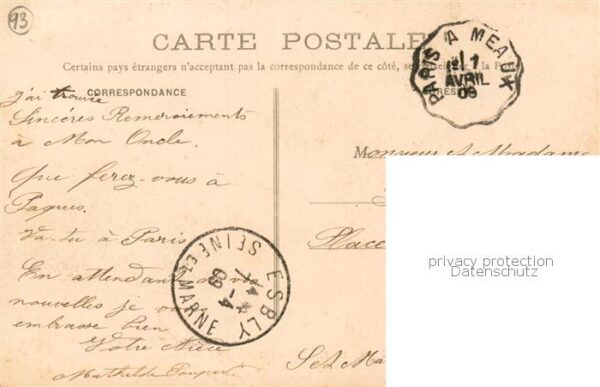 93
CARTE POSTALE
Certains pays étrangers n'acceptent pas la correspondance de ce côté, se à la Po
CORRESPONDANCE
RES
PARIS A MEAUX
1
AVRIL
09
j'ai trouvée
Sincères Remerciements
à Mon Oncle.
Que ferez-vous à
Paques.
Va-tu à Paris
En attendant
nouvelles je
embrasse bien
Votre Nièce
Mathilde
ESBLY
SEINE ET MARNE
-4
09
Monsieur et Madame
Place
S et Ma
privacy protection
Datenschutz